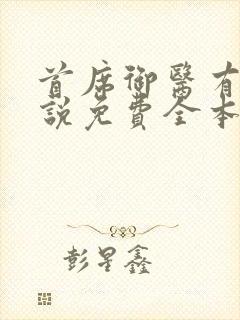 首席御醫有
說免費全本
彭星鑫